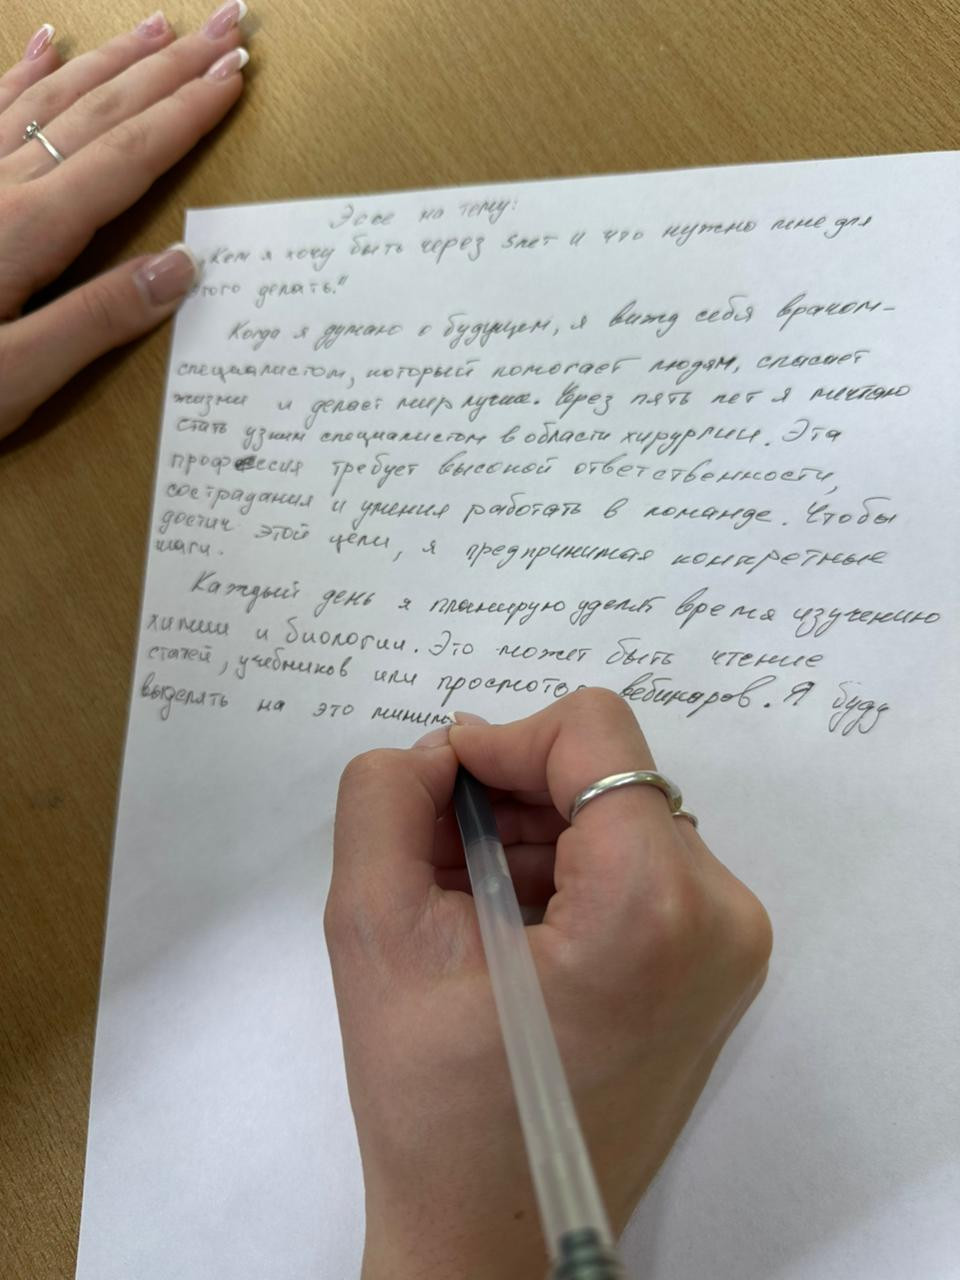 Эссе на тему:
„Кем я хочу быть через 5 лет и что нужно мне для
этого делать."
Когда я думаю о будущем, я вижу себя врачом-
специалистом, который помогает людям, спасает
жизни и делает мир лучше. Через пять лет я мечтаю
стать узким специалистом в области хирургии. Эта
профессия требует высокой ответственности,
сострадания и умения работать в команде. Чтобы
достич этой цели, я предпринимая конкретные
шаги.
Каждый день я планирую уделять время изучению
химии и биологии. Это может быть чтение
статей, учебников или просмотр вебинаров. Я буду
выделять на это миним